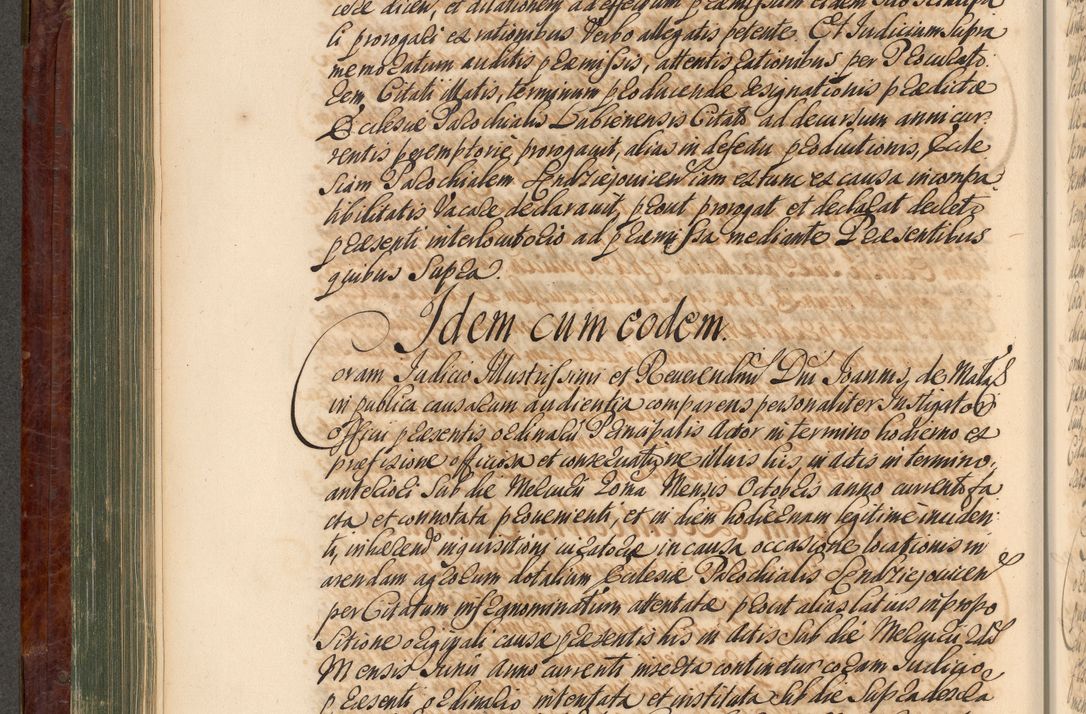 li prorogari ex rationibus Verbo allegatis petente. Et Iudicium supra
memoratum auditis præmissis, attentis rationibus per Procurato:
rem Citati Illatis, terminum producendæ designationis prædictæ
Ecclesiæ Parochialis Babienensis Citat ad decursum anni cur:
rentis peremptorie prorogavit, alias in defectu productionis, Eccle
siam Parochialem Jendrziejovicen iam ex tunc ex causa incompa
tibilitatis Vacare declaravit, prout prorogat et declarat decreto
præsenti interlocutorio ad præmissa mediante Præsentibus
quibus Supra.
Idem cum eodem.
Coram Iudicio Illustrissimi et Reverendmi Dni Joannis, de Mala
in publica causarum audientia comparens personaliter Instigator
Officii præsentis ordinarii Principalis Actor in termino hodierno ex
præfixione officiosa et conservatione Illius his, in actis in termino
anteriori Sub die Mercurii 2oma Mensis Octobris anno currenti fa
cta et connotata proveniente, et in diem hodiernam legitime inciden:
ti, inhærendo inquisitioni iuratoriæ in causa occasione locationis in
arendam agrorum dotalium Ecclesiæ Parochialis Jendrziejovicen
per Citatum infrgnominatum attentatæ prout alias latius in propo
sitione originali causæ præsentis his in Actis Sub die Mercurii
Mensis Junii Anno currenti inserta continetur coram Iudicio
præsenti ordinario intentata et instituta Sub die Supradescra